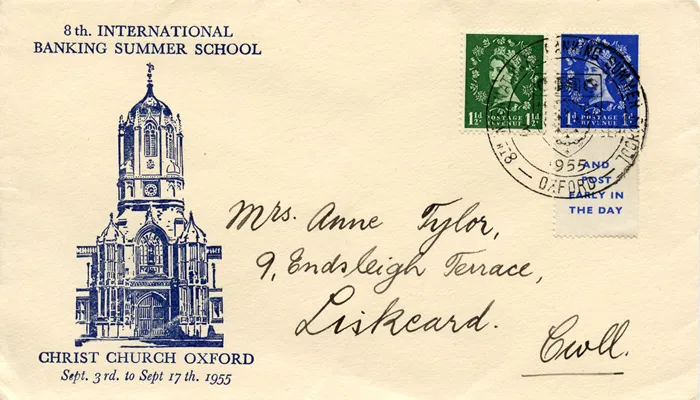 8th. INTERNATIONAL
BANKING SUMMER SCHOOL
CHRIST CHURCH OXFORD
Sept. 3rd. to Sept 17th. 1955
1½d 1½d
POSTAGE
REVENUE
1d 1d
POSTAGE
REVENUE
8TH
BANKING SUMMER SCHOOL
1955
OXFORD
AND
POST
EARLY IN
THE DAY
Mrs. Anne Tylor,
9, Endsleigh Terrace,
Liskeard.
Cwll.